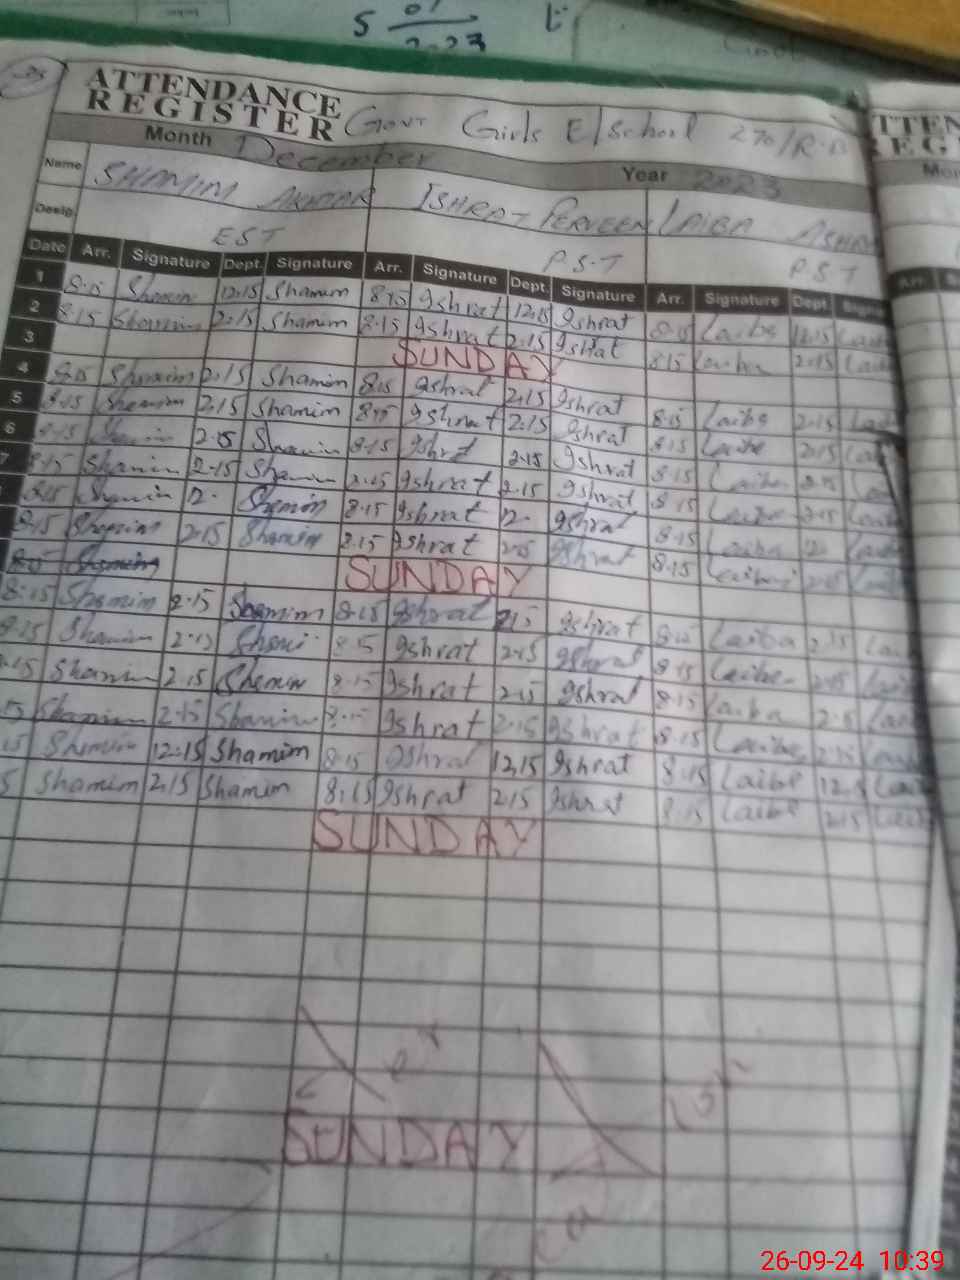 5 01
2023
ATTENDANCE
REGISTER Govt Girls E/School 270/R.B
Month December Year 2023
Name SHAMIM AKHTAR ISHRAT PERVEEN LAIBA ASHR
Desig: EST P.S.T P.S.T
Date Arr. Signature Dept. Signature Arr. Signature Dept. Signature Arr. Signature Dept. Signa
1 8.15 Shamim 12.15 Shamim 8.15 Ishrat 12.15 Ishrat 8.15 Laiba 12.15 Laib
2 8.15 Shamim 2.15 Shamim 8.15 Ishrat 2.15 Ishrat 8.15 Laiba 2.15 Laib
3 SUNDAY
4 8.15 Shamim 2.15 Shamim 8.15 Ishrat 2.15 Ishrat 8.15 Laiba 2.15 Laib
5 8.15 Shamim 2.15 Shamim 8.15 Ishrat 2.15 Ishrat 8.15 Laiba 2.15 La
6 8.15 Shamim 2.15 Shamim 8.15 Ishrat 2.15 Ishrat 8.15 Laiba 2.15 La
7 8.15 Shamim 2.15 Shamim 8.15 Ishrat 2.15 Ishrat 8.15 Laiba 2.15 Lai
8.15 Shamim 12. Shamim 8.15 Ishrat 12. Ishrat 8.15 Laiba 12 Laib
8.15 Shamim 2.15 Shamim 8.15 Ishrat 2.15 Ishrat 8.15 Laiba 2.15 Laib
8.15 Shamim SUNDAY
8.15 Shamim 2.15 Shamim 8.15 Ishrat 2.15 Ishrat 8.15 Laiba 2.15 Lai
8.15 Shamim 2.15 Shami 8.15 Ishrat 2.15 Ishrat 8.15 Laiba 2.15 Laib
.15 Shamim 2.15 Shamim 8.15 Ishrat 2.15 Ishrat 8.15 Laiba 2.15 Lai
5 Shamim 2.15 Shamim 8.15 Ishrat 2.15 Ishrat 8.15 Laiba 2.15 Laib
15 Shamim 12.15 Shamim 8.15 Ishrat 12.15 Ishrat 8.15 Laiba 12.15 Lai
5 Shamim 2.15 Shamim 8.15 Ishrat 2.15 Ishrat 8.15 Laiba 2.15 Laib
SUNDAY
SUNDAY
TTEN
EG
Mon
Arr. S
26-09-24 10:39